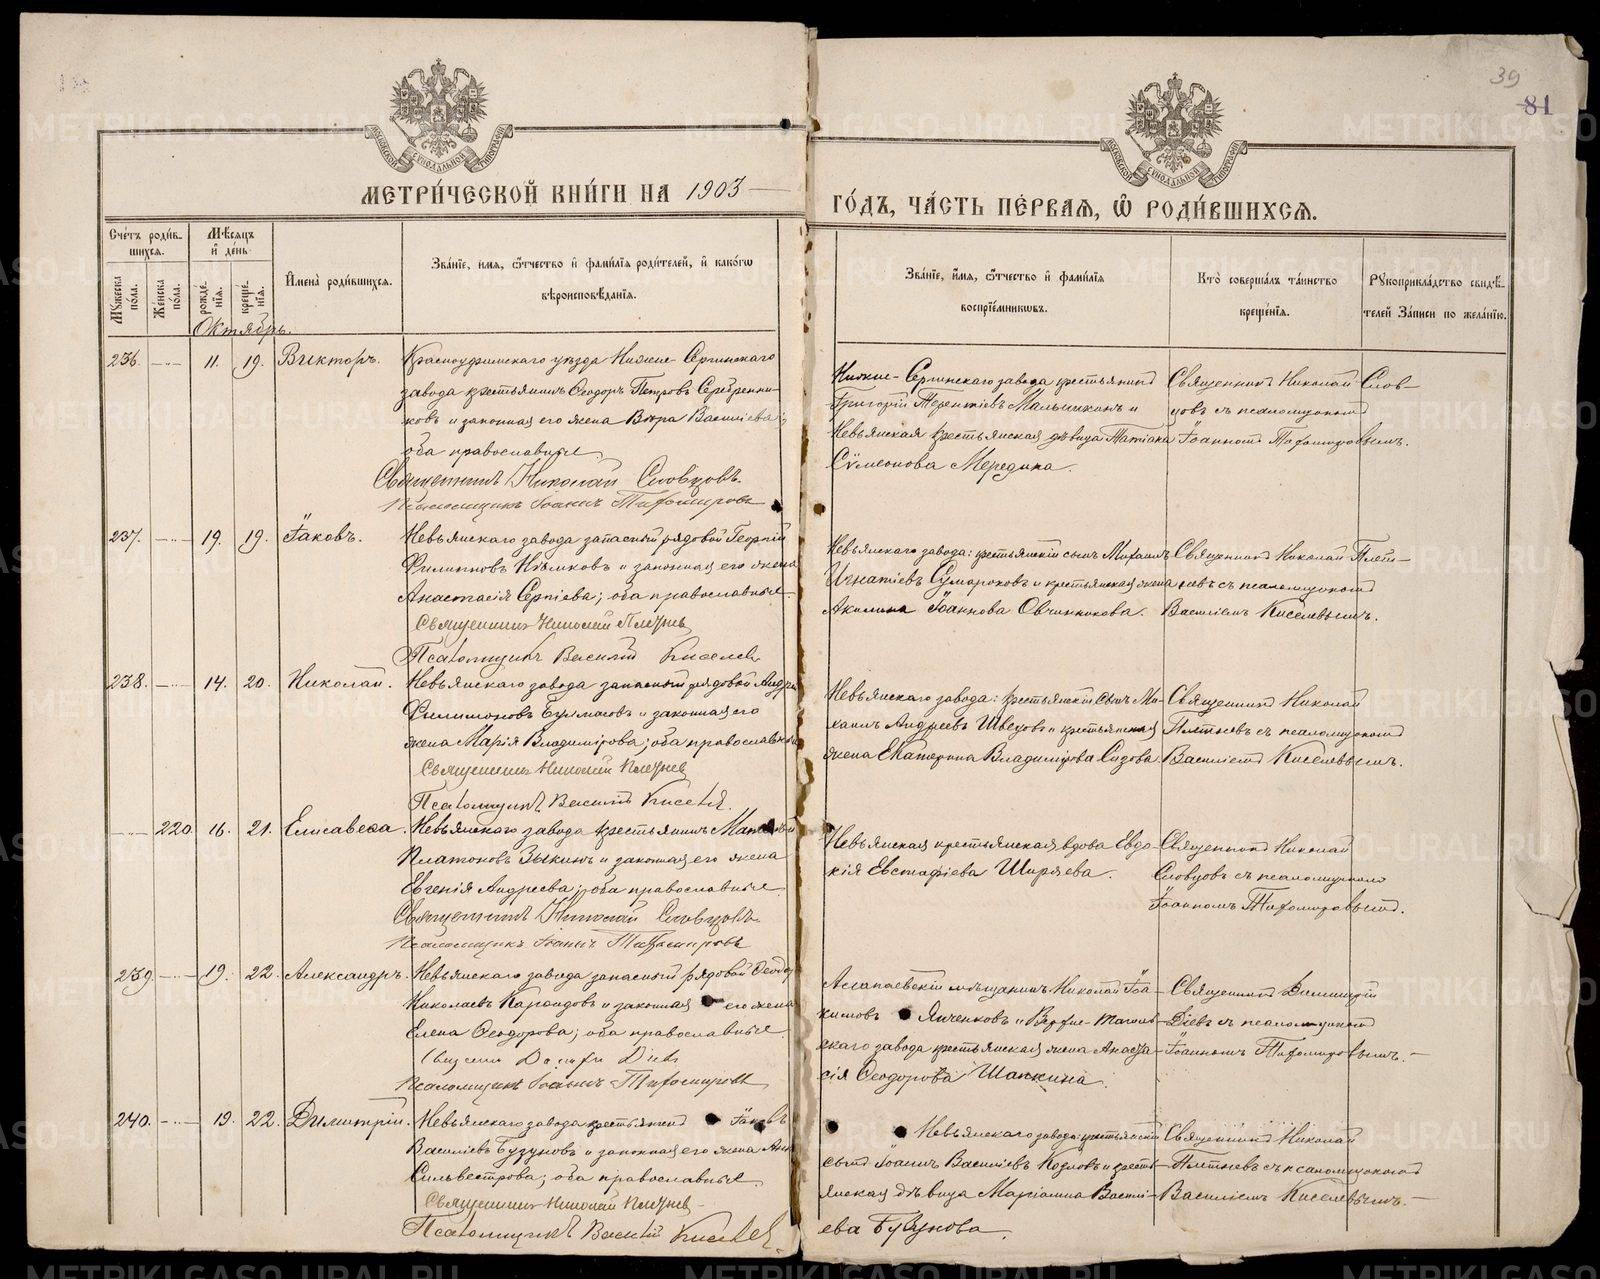 39
81
МЕТРИ́ЧЕСКОЙ КНИ́ГИ НА 1903
ГО́ДЪ, ЧА́СТЬ ПЕ́РВАЯ, Ѡ҆ РОДИ́ВШИХСЯ.
МОСКОВСКОЙ СѴНОДАЛЬНОЙ ТИПОГРАФІИ
МОСКОВСКОЙ СѴНОДАЛЬНОЙ ТИПОГРАФІИ
Сче́тъ роди́вшихся.
Му́жеска по́ла.
Же́нска по́ла.
Мѣ́сяцъ и҆ де́нь
рожде́нїя.
креще́нїя.
И҆мена̀ роди́вшихся.
Зва́нїе, и҆мя, ѻ҆́тчество и҆ фами́лїя роди́телей, и҆ како́гѡ
вѣроисповѣ́данїя.
Зва́нїе, и҆́мя, ѻ҆́тчество и҆ фами́лїя
воспрїе́мникѡвъ.
Кто̀ соверша́лъ та́инство
креще́нїя.
Рꙋкоприкла́дство свидѣ́телей за́писи по жела́нїю.
Октябрь.
236. 11. 19. Викторъ.
Красноуфимскаго уѣзда Нижне-Сергинскаго
завода крестьянинъ Ѳеодоръ Петровъ Серебренни-
ковъ и законная его жена Вѣра Васильева;
оба православные
Священникъ Николай Словцовъ.
Псаломщикъ Іоаннъ Тихомировъ
Нижне-Сергинскаго завода крестьянинъ
Григорій Терентіевъ Мальчикинъ и
Невьянская крестьянская дѣвица Татіана
Сѵмеонова Мередина.
Священникъ Николай Слов-
цовъ съ псаломщикомъ
Іоанномъ Тихомировымъ.
237. 19. 19. Іаковъ.
Невьянскаго завода запасный рядовой Георгій
Филипповъ и законная его жена
Анастасія Сергіева; оба православные
Священникъ Николай Плетнев
Псаломщикъ Василій Киселев
Невьянскаго завода: крестьянскій сынъ Михаилъ
Игнатіевъ Сумороковъ и крестьянская жена
Акилина Іоаннова Овчинникова.
Священникъ Николай Плет-
невъ съ псаломщикомъ
Василіемъ Киселевымъ.
238. 14. 20. Николай.
Невьянскаго завода запасный рядовой Андрей
Филимоновъ и законная его
жена Марія Владимірова; оба православные
Священникъ Николай Плетнев
Псаломщикъ Василій Киселев.
Невьянскаго завода: крестьянскій сынъ Ми-
хаилъ Андреевъ Швецовъ и крестьянская
жена Екатерина Владимірова Сидова.
Священникъ Николай
Плетневъ съ псаломщикомъ
Василіемъ Киселевымъ.
220. 16. 21. Елисавета.
Невьянскаго завода крестьянинъ
Платоновъ Зыкинъ и законная его жена
Евгенія Андреева; оба православные
Священникъ Николай Словцовъ
Псаломщикъ Іоаннъ Тихомировъ
Невьянская крестьянская вдова Евдо-
кія Евстафіева Ширяева.
Священникъ Николай
Словцовъ съ псаломщикомъ
Іоанномъ Тихомировымъ.
239. 19. 22. Александръ.
Невьянскаго завода запасный рядовой Ѳеодоръ
Николаевъ и законная его жена
Елена Ѳеодорова; оба православные
Димитрій Діевъ
Псаломщикъ Іоаннъ Тихомировъ
Алапаевскій мѣщанинъ Николай Іоа-
кимовъ Янченковъ и Верхне-Тагиль-
скаго завода крестьянская жена Анаста-
сія Ѳеодорова Шапкина.
Священникъ Димитрій
Діевъ съ псаломщикомъ
Іоанномъ Тихомировымъ.
240. 19. 22. Димитрій.
Невьянскаго завода крестьянинъ Іаковъ
Василіевъ Бузуновъ и законная его жена Анна
Сильвестрова; оба православные.
Священникъ Николай Плетнев
Псаломщикъ Василій Киселев.
Невьянскаго завода крестьянскій
сынъ Іоаннъ Василіевъ Козловъ и кресть-
янская дѣвица Маріанна Василі-
ева Бузунова.
Священникъ Николай
Плетневъ съ псаломщикомъ
Василіемъ Киселевымъ.
METRIKI.GASO-URAL.RU